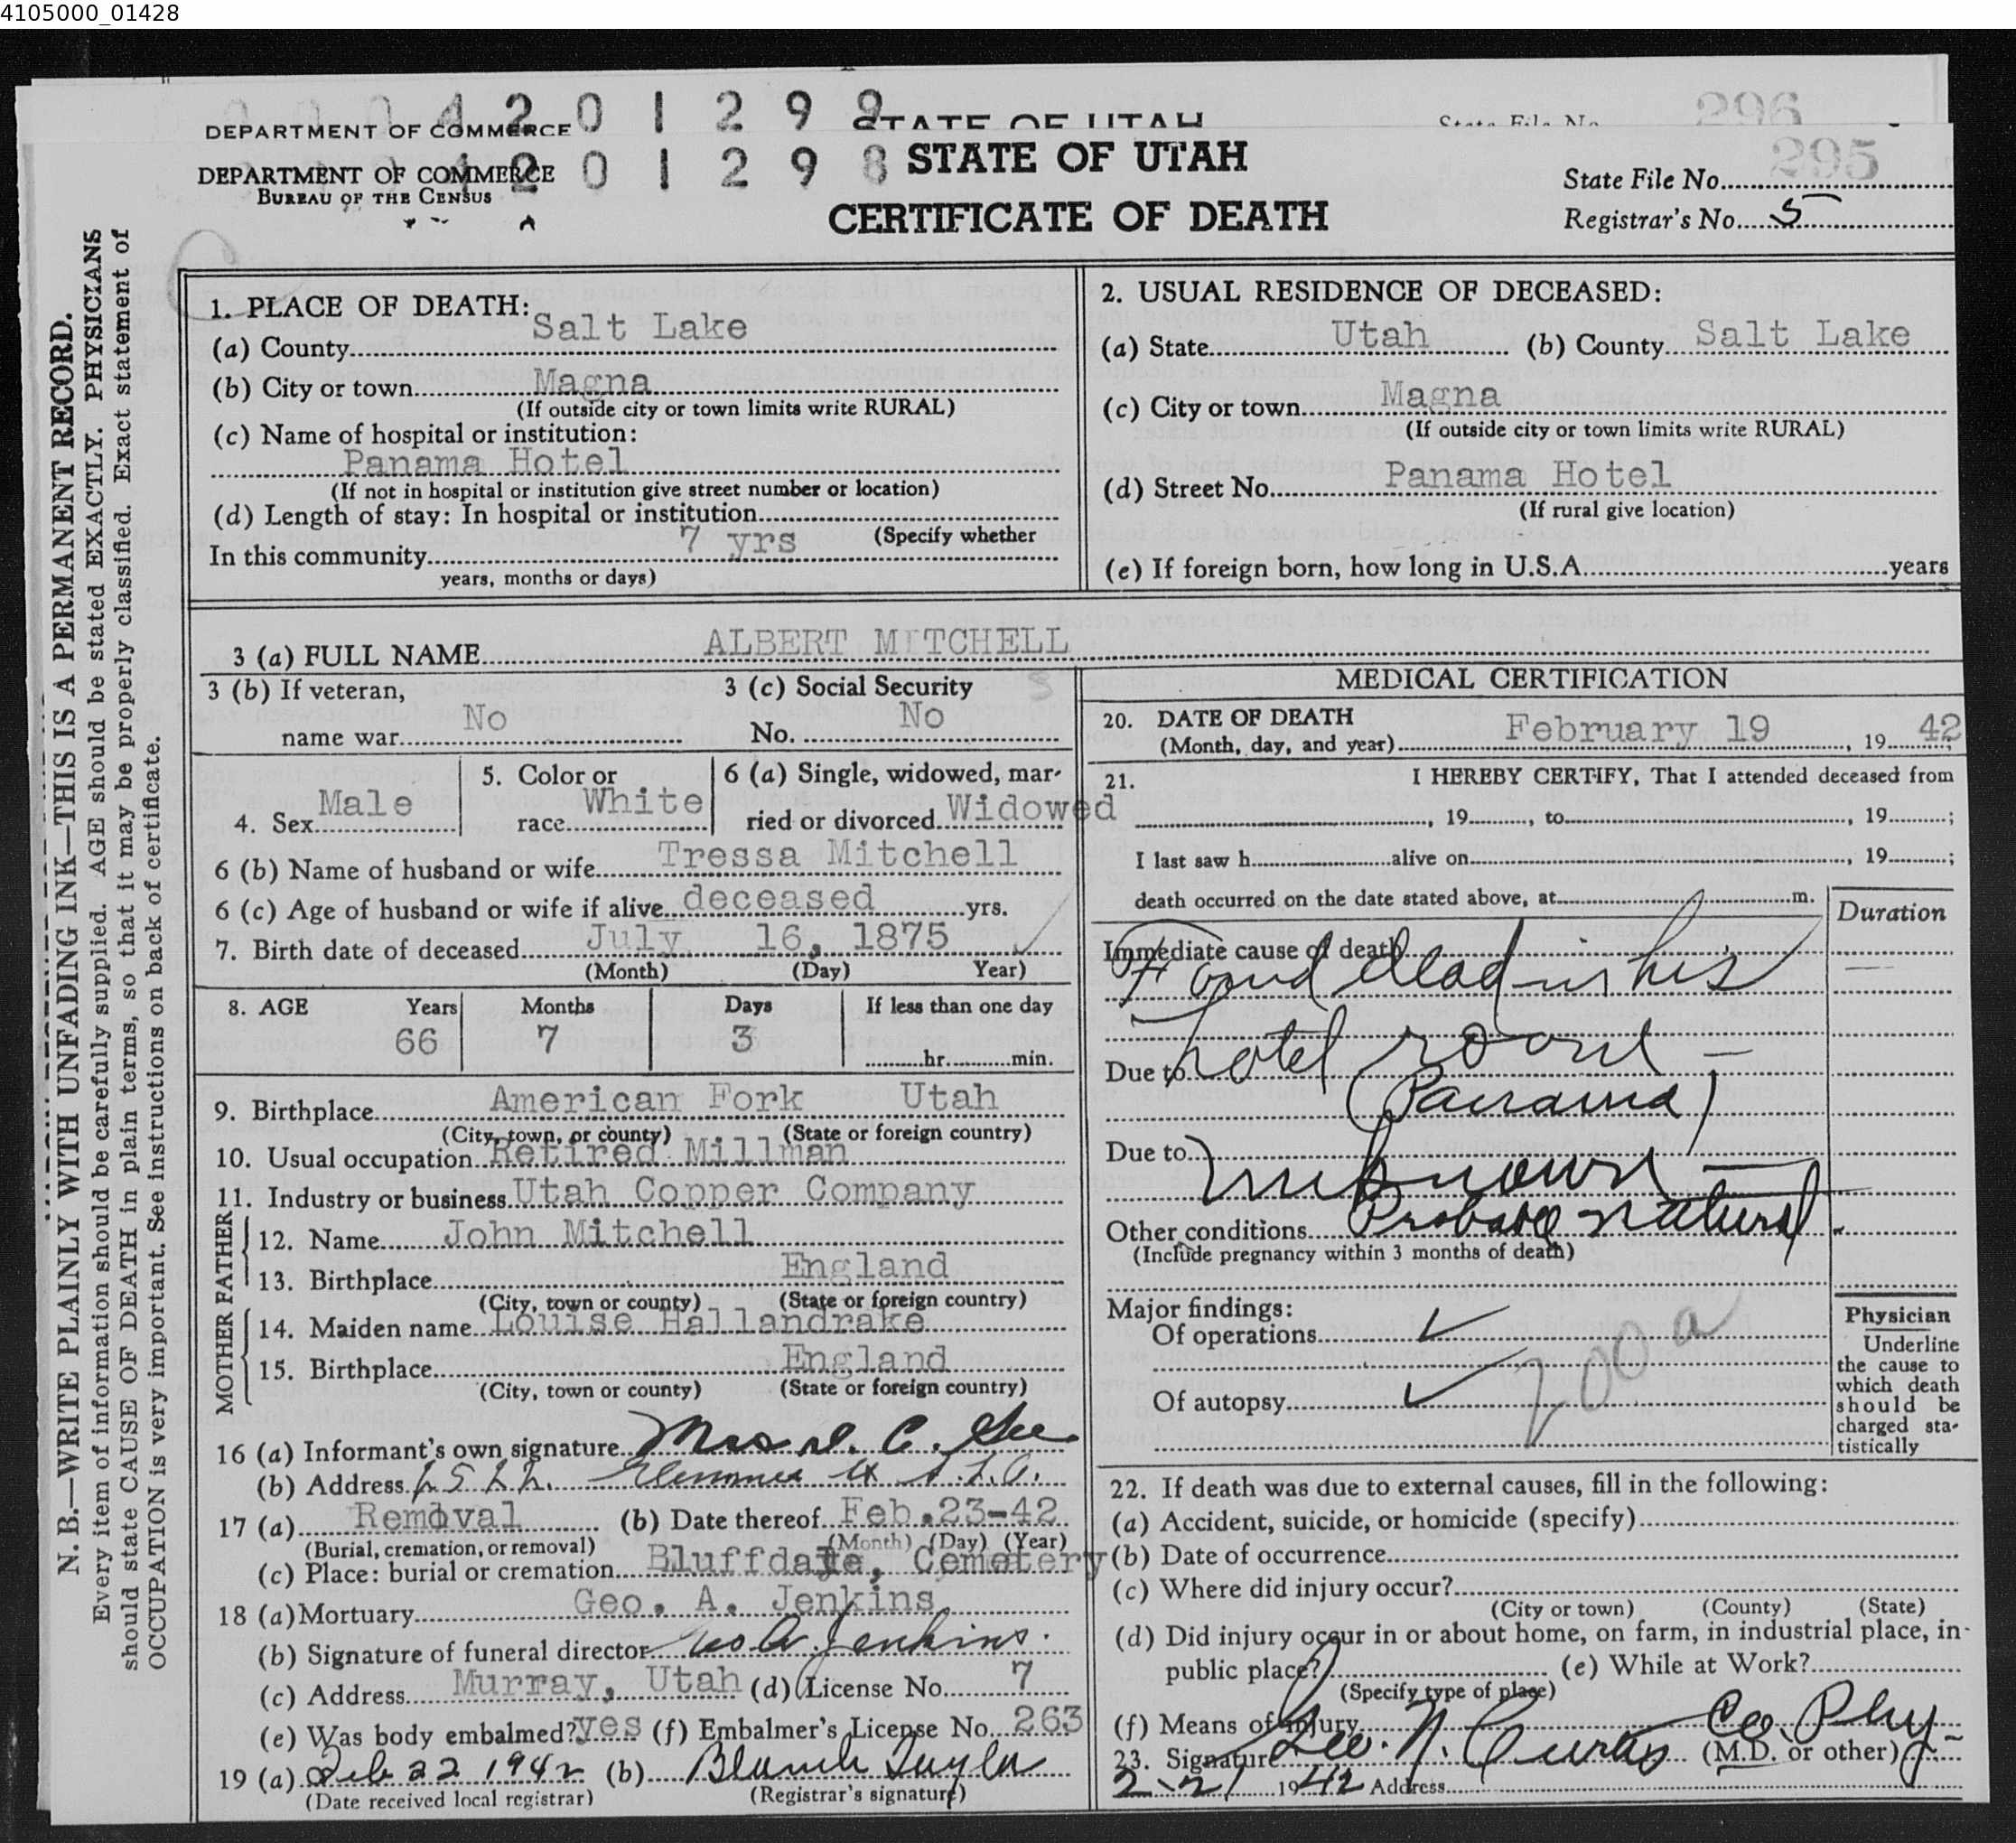 4105000_01428
DEPARTMENT OF COMMERCE
4201299
STATE OF UTAH
State File No.
296
DEPARTMENT OF COMMERCE
BUREAU OF THE CENSUS
4201298
STATE OF UTAH
CERTIFICATE OF DEATH
State File No. 295
Registrar's No. 5
N. B.—WRITE PLAINLY WITH UNFADING INK—THIS IS A PERMANENT RECORD.
Every item of information should be carefully supplied. AGE should be stated EXACTLY. PHYSICIANS
should state CAUSE OF DEATH in plain terms, so that it may be properly classified. Exact statement of
OCCUPATION is very important. See instructions on back of certificate.
1. PLACE OF DEATH:
(a) County Salt Lake
(b) City or town Magna
(If outside city or town limits write RURAL)
(c) Name of hospital or institution:
Panama Hotel
(If not in hospital or institution give street number or location)
(d) Length of stay: In hospital or institution
(Specify whether
In this community 7 yrs
years, months or days)
2. USUAL RESIDENCE OF DECEASED:
(a) State Utah (b) County Salt Lake
(c) City or town Magna
(If outside city or town limits write RURAL)
(d) Street No. Panama Hotel
(If rural give location)
(e) If foreign born, how long in U.S.A. years
3 (a) FULL NAME ALBERT MITCHELL
3 (b) If veteran,
name war No
3 (c) Social Security
No. No
4. Sex Male
5. Color or
race White
6 (a) Single, widowed, mar-
ried or divorced Widowed
6 (b) Name of husband or wife Tressa Mitchell
6 (c) Age of husband or wife if alive deceased yrs.
7. Birth date of deceased July 16, 1875
(Month) (Day) Year)
8. AGE Years Months Days If less than one day
66 7 3 hr. min.
9. Birthplace American Fork Utah
(City, town, or county) (State or foreign country)
10. Usual occupation Retired Millman
11. Industry or business Utah Copper Company
FATHER
12. Name John Mitchell
13. Birthplace England
(City, town or county) (State or foreign country)
MOTHER
14. Maiden name Louise Hallandrake
15. Birthplace England
(City, town or county) (State or foreign country)
16 (a) Informant's own signature Mrs C. Gee
(b) Address
17 (a) Removal (b) Date thereof Feb.23-42
(Burial, cremation, or removal) (Month) (Day) (Year)
(c) Place: burial or cremation Bluffdale, Cemetery
18 (a) Mortuary Geo. A. Jenkins
(b) Signature of funeral director Geo A. Jenkins.
(c) Address Murray, Utah (d) License No. 7
(e) Was body embalmed? yes (f) Embalmer's License No. 263
19 (a) Feb 22 1942 (b) Blanch Taylor
(Date received local registrar) (Registrar's signature)
MEDICAL CERTIFICATION
20. DATE OF DEATH
(Month, day, and year) February 19, 1942
21. I HEREBY CERTIFY, That I attended deceased from
, 19, to, 19;
I last saw h alive on, 19;
death occurred on the date stated above, at m.
Duration
Immediate cause of death
Found dead in his
hotel room —
Due to
(Panama)
Due to
Unknown —
Other conditions Probably natural
(Include pregnancy within 3 months of death)
Major findings:
Of operations
Of autopsy
200 a
Physician
Underline
the cause to
which death
should be
charged sta-
tistically
22. If death was due to external causes, fill in the following:
(a) Accident, suicide, or homicide (specify)
(b) Date of occurrence
(c) Where did injury occur?
(City or town) (County) (State)
(d) Did injury occur in or about home, on farm, in industrial place, in
public place? (e) While at Work?
(Specify type of place)
(f) Means of injury
Co. Phy
23. Signature Geo. N. Curtis (M.D. or other)
2-21 1942 Address